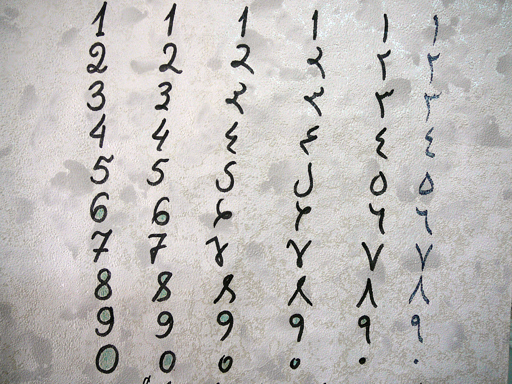 1 1 1 1 ١ ١
2 2 2 ٢ ٢ ٢
3 3 ٣ ٣
4 4 ٤ ٤ ٤ ٤
5 5 ٥ ٥
6 6 ٦ ٦
7 7 ٧ ٧
8 8 8 ٨ ٨ ٨
9 9 9 9 ٩ ٩
0 0 0 0 ٠ ٠